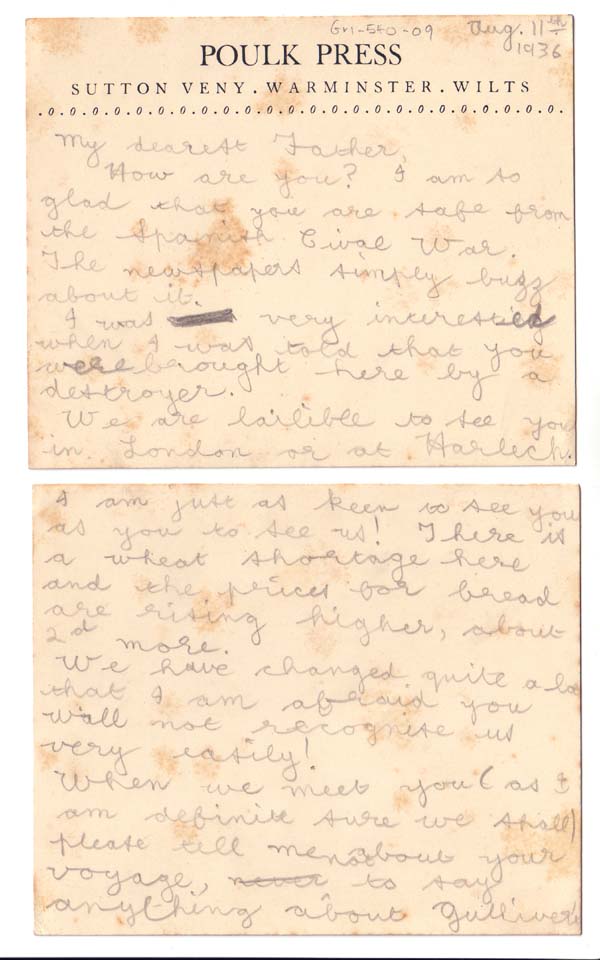 Gri-540-09 Aug. 11th
1936
POULK PRESS
SUTTON VENY . WARMINSTER . WILTS
My dearest Father,
How are you? I am so
glad that you are safe from
the Spanish Cival War.
The newspapers simply buzz
about it.
I was very interested
when I was told that you
were brought here by a
destroyer.
We are lailible to see you
in London or at Harlech.
I am just as keen to see you
as you to see us! There is
a wheat shortage here
and the prices for bread
are rising higher, about
2d more.
We have changed quite a lo
that I am afraid you
wall not recognise us
very easily!
When we meet you (as I
am definite sure we shall)
please tell me about your
voyage, not to say
anything about Gulliver's